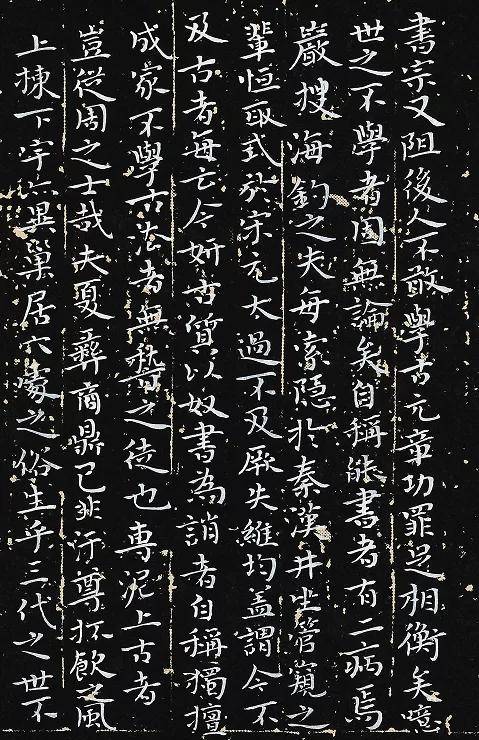 書宗又阻後人不敢學古元章功罪足相衡矣噫
世之不學者固無論矣自稱能書者有二病焉
巖搜海釣之夫每索隱於秦漢井坐管窺之
輩恒取式於宋元太過不及厥失維均蓋謂今不
及古者每云今妍古質以奴書為誚者自稱獨擅
成家不學古法者無稽之徒也專泥上古者
豈從周之士哉夫夏彝商鼎已非汙尊抔飲之風
上棟下宇亦異巢居穴處之俗生乎三代之世不